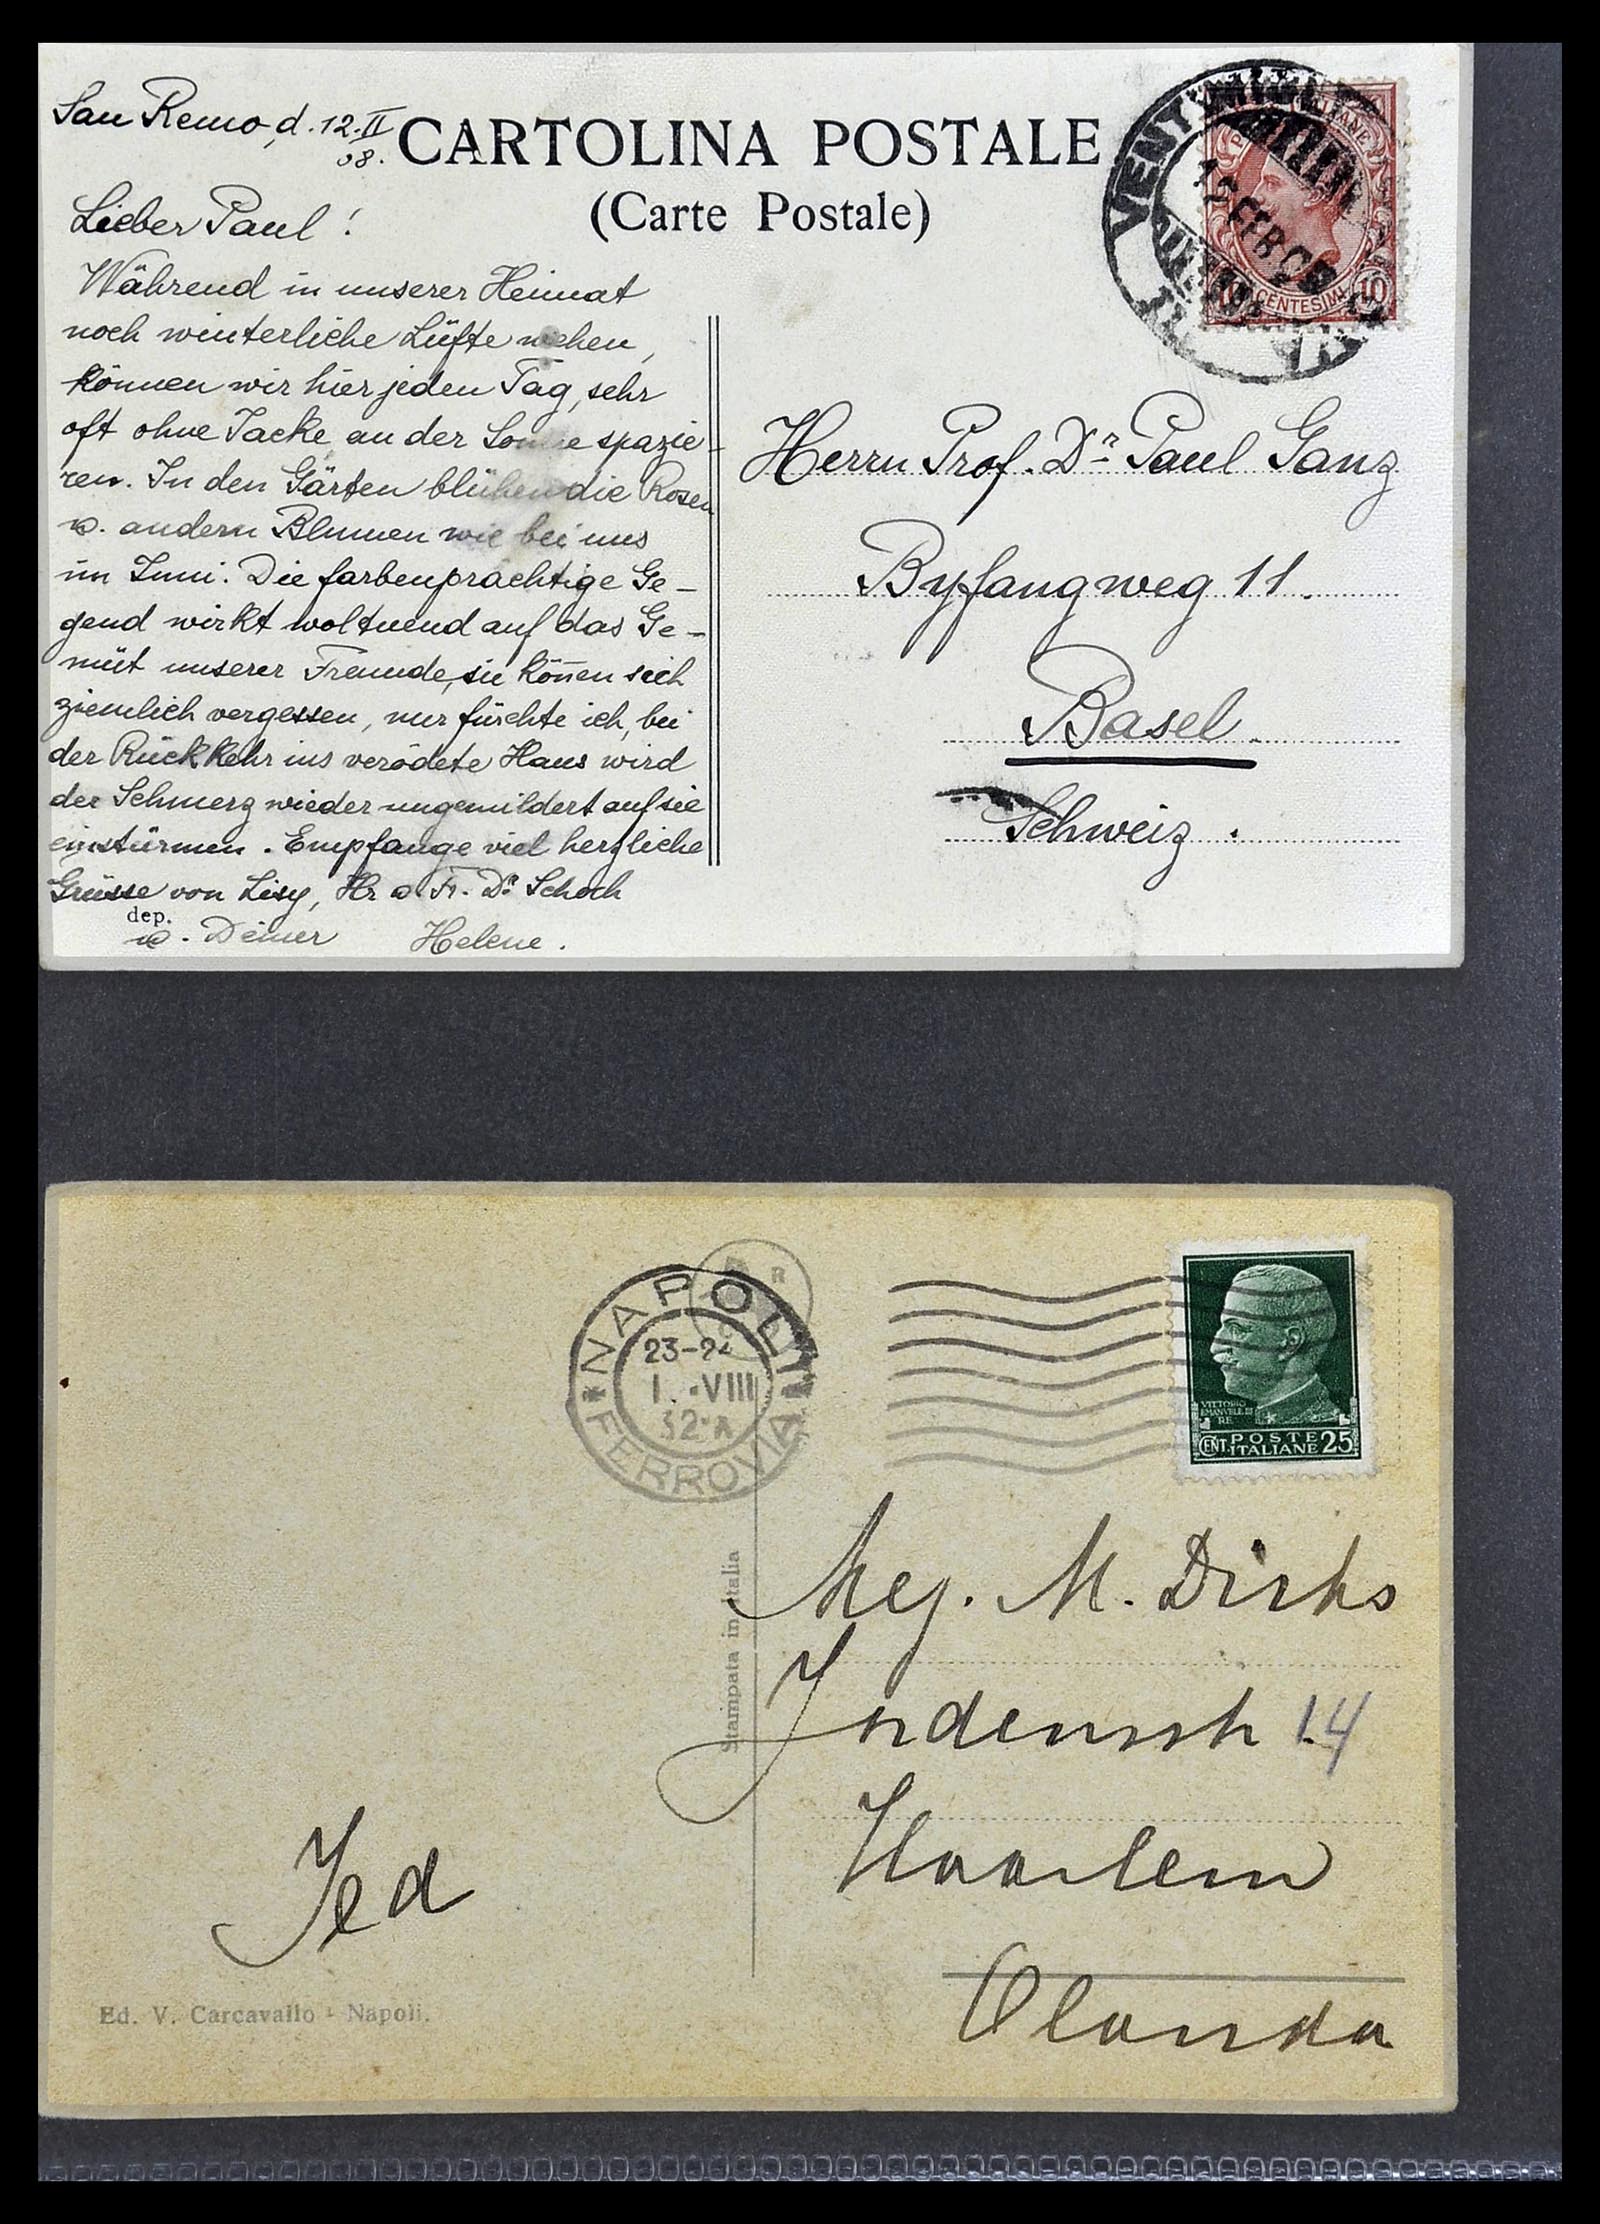 San Remo, d. 12. II
08.
CARTOLINA POSTALE
(Carte Postale)
Lieber Paul!
Während in unserer Heimat
noch winterliche Lüfte wehen,
können wir hier jeden Tag, sehr
oft ohne Jacke, an der Sonne spazie-
ren. In den Gärten blühen die Rosen
u. andern Blumen wie bei uns
im Juni. Die farbenprächtige Ge-
gend wirkt woltuend auf das Ge-
müt unserer Freunde, sie kön̄en sich
ziemlich vergessen, nur fürchte ich, bei
der Rückkehr ins verödete Haus wird
der Schmerz wieder ungemildert auf sie
einstürmen. Empfange viel herzliche
Grüsse von Lisy, Hr. u. Fr. Dr. Schoch
dep.
u. Deiner Helene.
VENTIMIGLIA
12 FEB 08
POSTE ITALIANE
10 CENTESIMI 10
Herrn Prof. Dr. Paul Ganz
Byfangweg 11.
Basel.
Schweiz.
NAPOLI
23-24
1.-VIII
32·X
FERROVIA
VITTORIO
EMANVELE III
RE
CENT. POSTE ITALIANE 25
Stampata in Italia
Mej. M. Dirks
Jordensstr 14
Haarlem
Olanda
Jed
Ed. V. Carcavallo - Napoli.